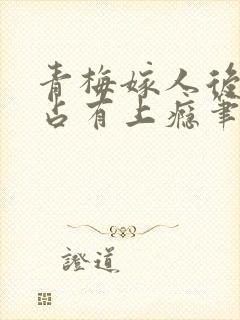 青梅嫁人後
占有上癮筆
證道